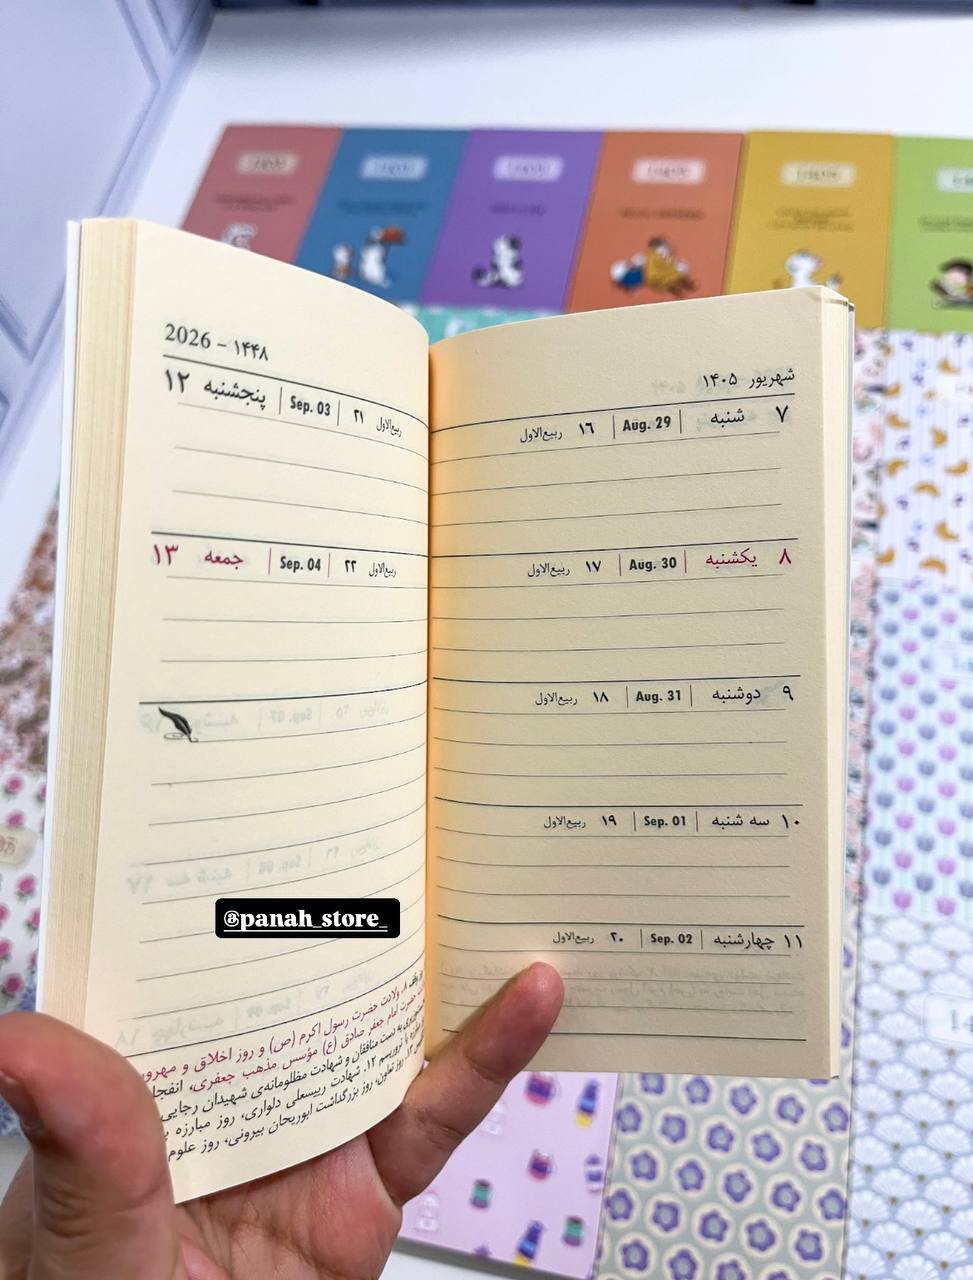 شهریور ۱۴۰۵
۷ شنبه | Aug. 29 | ۱۶ ربیع‌الاول
۸ یکشنبه | Aug. 30 | ۱۷ ربیع‌الاول
۹ دوشنبه | Aug. 31 | ۱۸ ربیع‌الاول
۱۰ سه شنبه | Sep. 01 | ۱۹ ربیع‌الاول
۱۱ چهارشنبه | Sep. 02 | ۲۰ ربیع‌الاول
2026 – ۱۴۴۸
۱۲ پنجشنبه | Sep. 03 | ۲۱ ربیع‌الاول
۱۳ جمعه | Sep. 04 | ۲۲ ربیع‌الاول
@panah_store_
۸. ولادت حضرت رسول اکرم (ص) و روز اخلاق و
حضرت امام جعفر صادق (ع) مؤسس مذهب جعفری،
به دست منافقان و شهادت مظلومانه‌ی شهیدان رجایی
با تروریسم ۱۲. شهادت رییسعلی دلواری، روز مبارزه
روز تعاون، روز بزرگداشت ابوریحان بیرونی، روز علوم